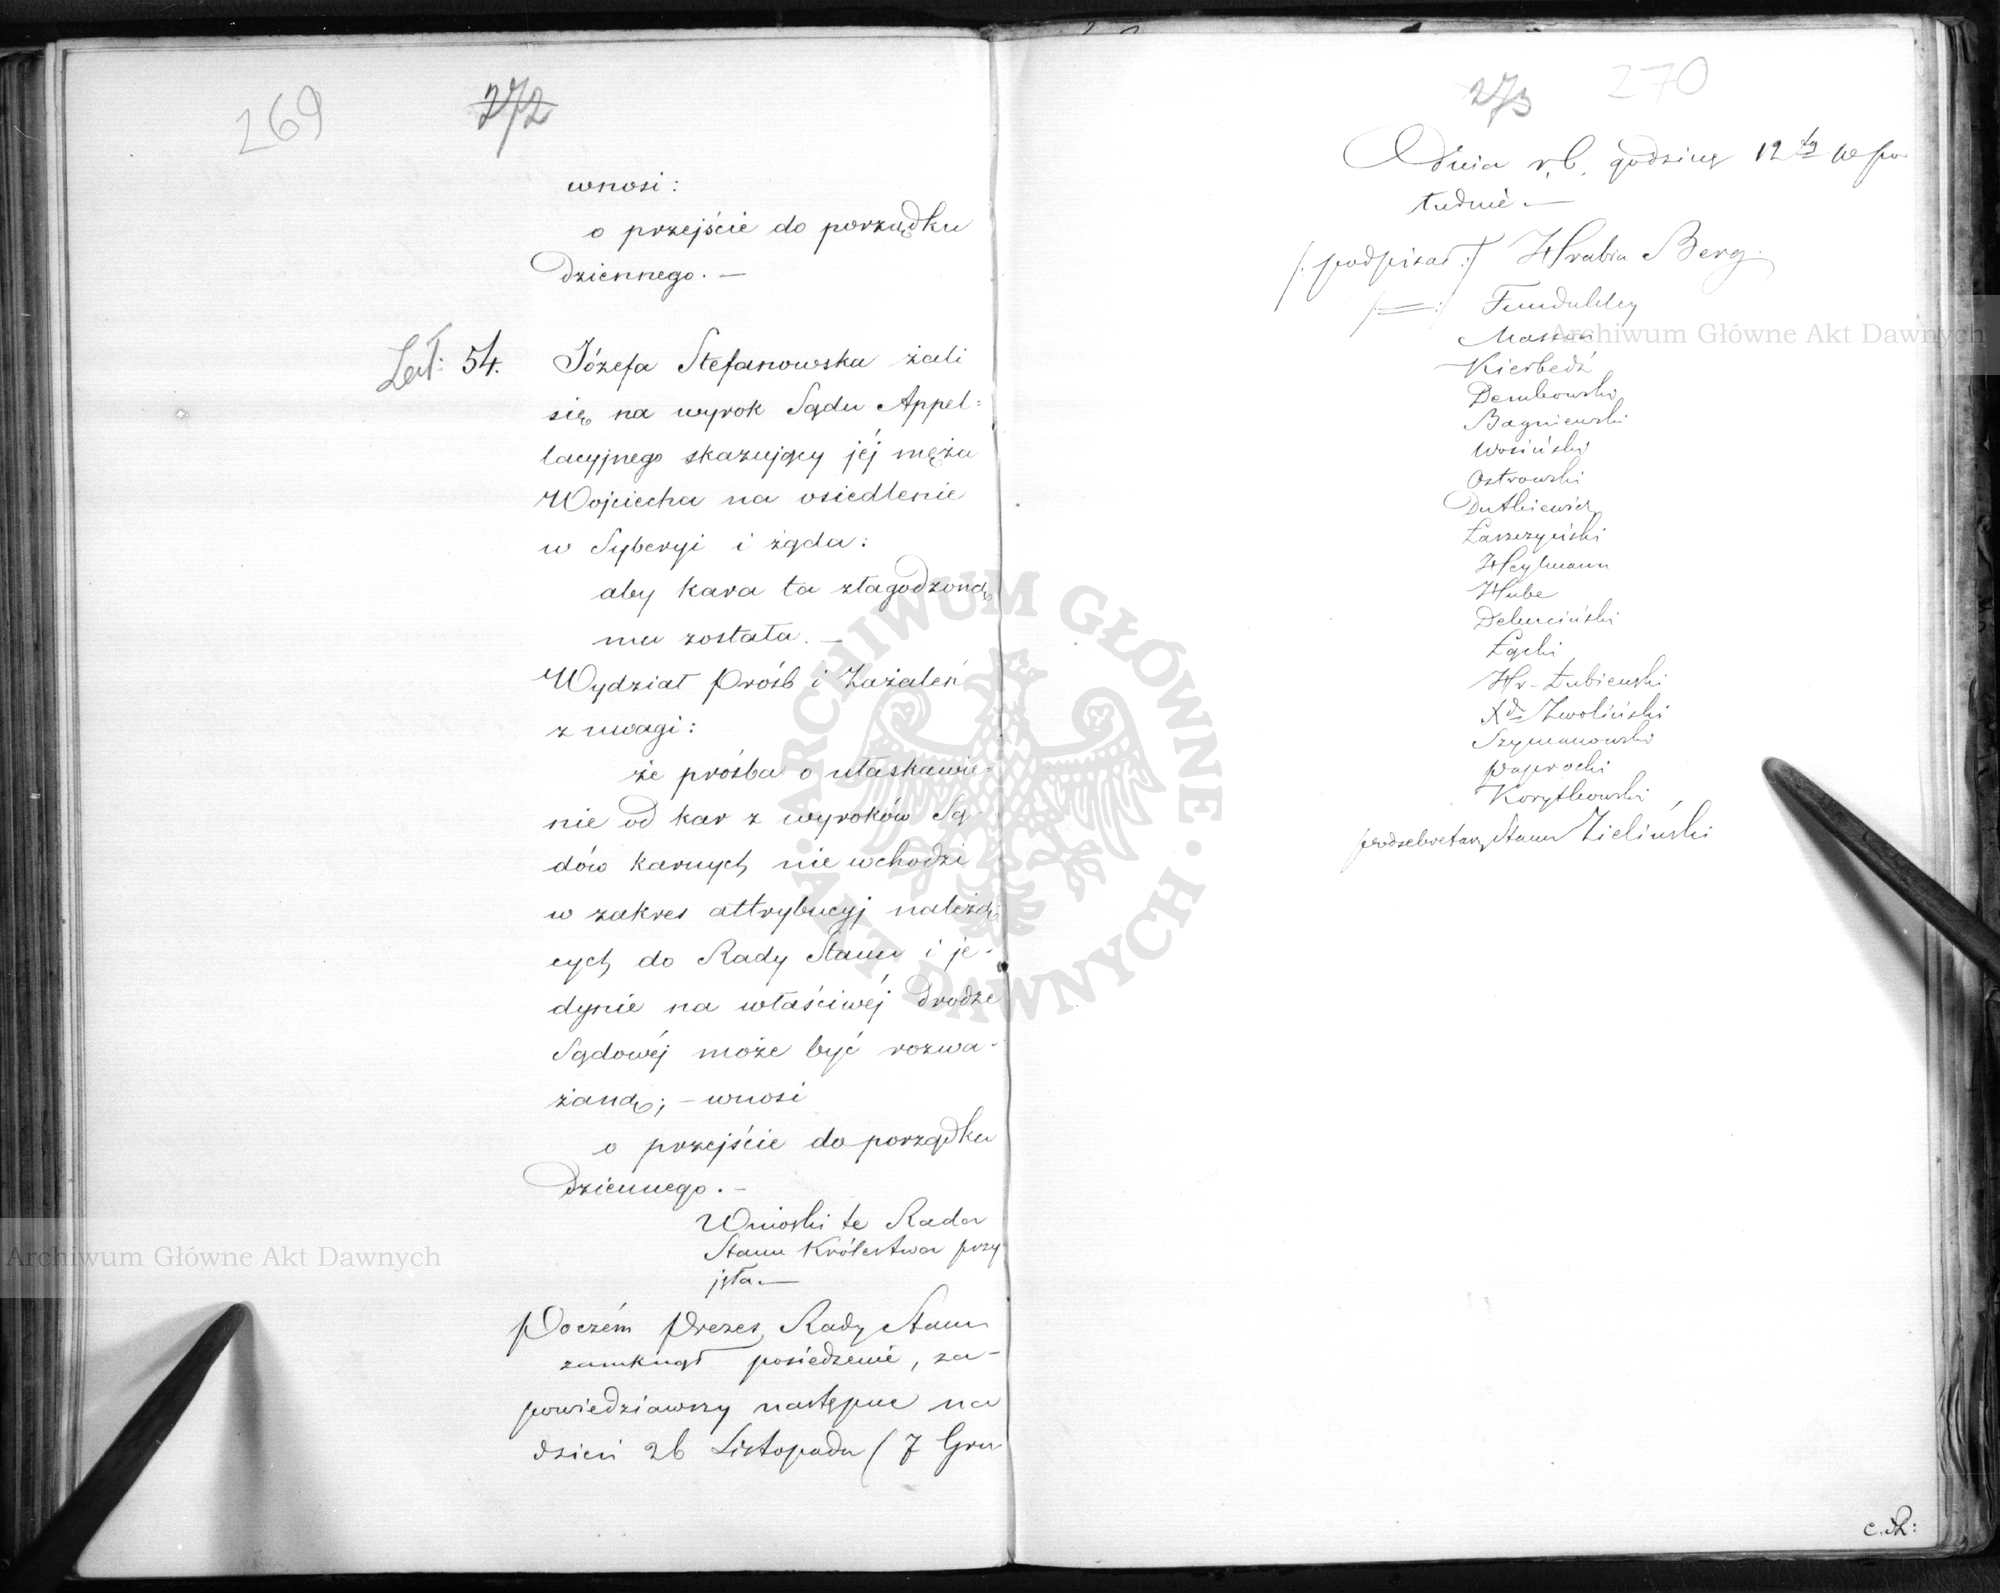 269
272
wnosi:
o przejście do porządku
dziennego. —
Lit: 54. Józefa Stefanowska żali
się na wyrok Sądu Appel=
lacyjnego skazujący jéj męża
Wojciecha na osiedlenie
w Syberyi i żąda:
aby kara ta złagodzoną
mu została. —
Wydział Próśb i Zażaleń
z uwagi:
że prośba o ułaskawie=
nie od kar z wyroków Są-
dów karnych nie wchodzi
w zakres attrybucyj należą
cych do Rady Stanu i je-
dynie na właściwéj drodze
Sądowéj może być rozwa-
żaną; — wnosi
o przejście do porządku
dziennego. —
Wnioski te Rada
Stanu Królestwa przy
jęła. —
Poczém Prezes Rady Stanu
zamknął posiedzenie, za-
powiedziawszy następne na
dzień 26 Listopada (7 Gru
273
270
dnia r. b. godzinę 12tą w po
łudnie —
/: podpisał :/ Hrabia Berg.
/: = :/ Funduklej
Kierbedź
Dembowski
Bagniewski
Wosiński
Ostrowski
Dutkiewicz
Łaszczyński
Heylmann
Hube
Łęcki
Hr. Łubieński
Xdz Zwoliński
Szymanowski
Paprocki
Korytkowski
podsekretarz Stanu Zieliński
Archiwum Główne Akt Dawnych
Archiwum Główne Akt Dawnych
ARCHIWUM GŁÓWNE · AKT DAWNYCH ·